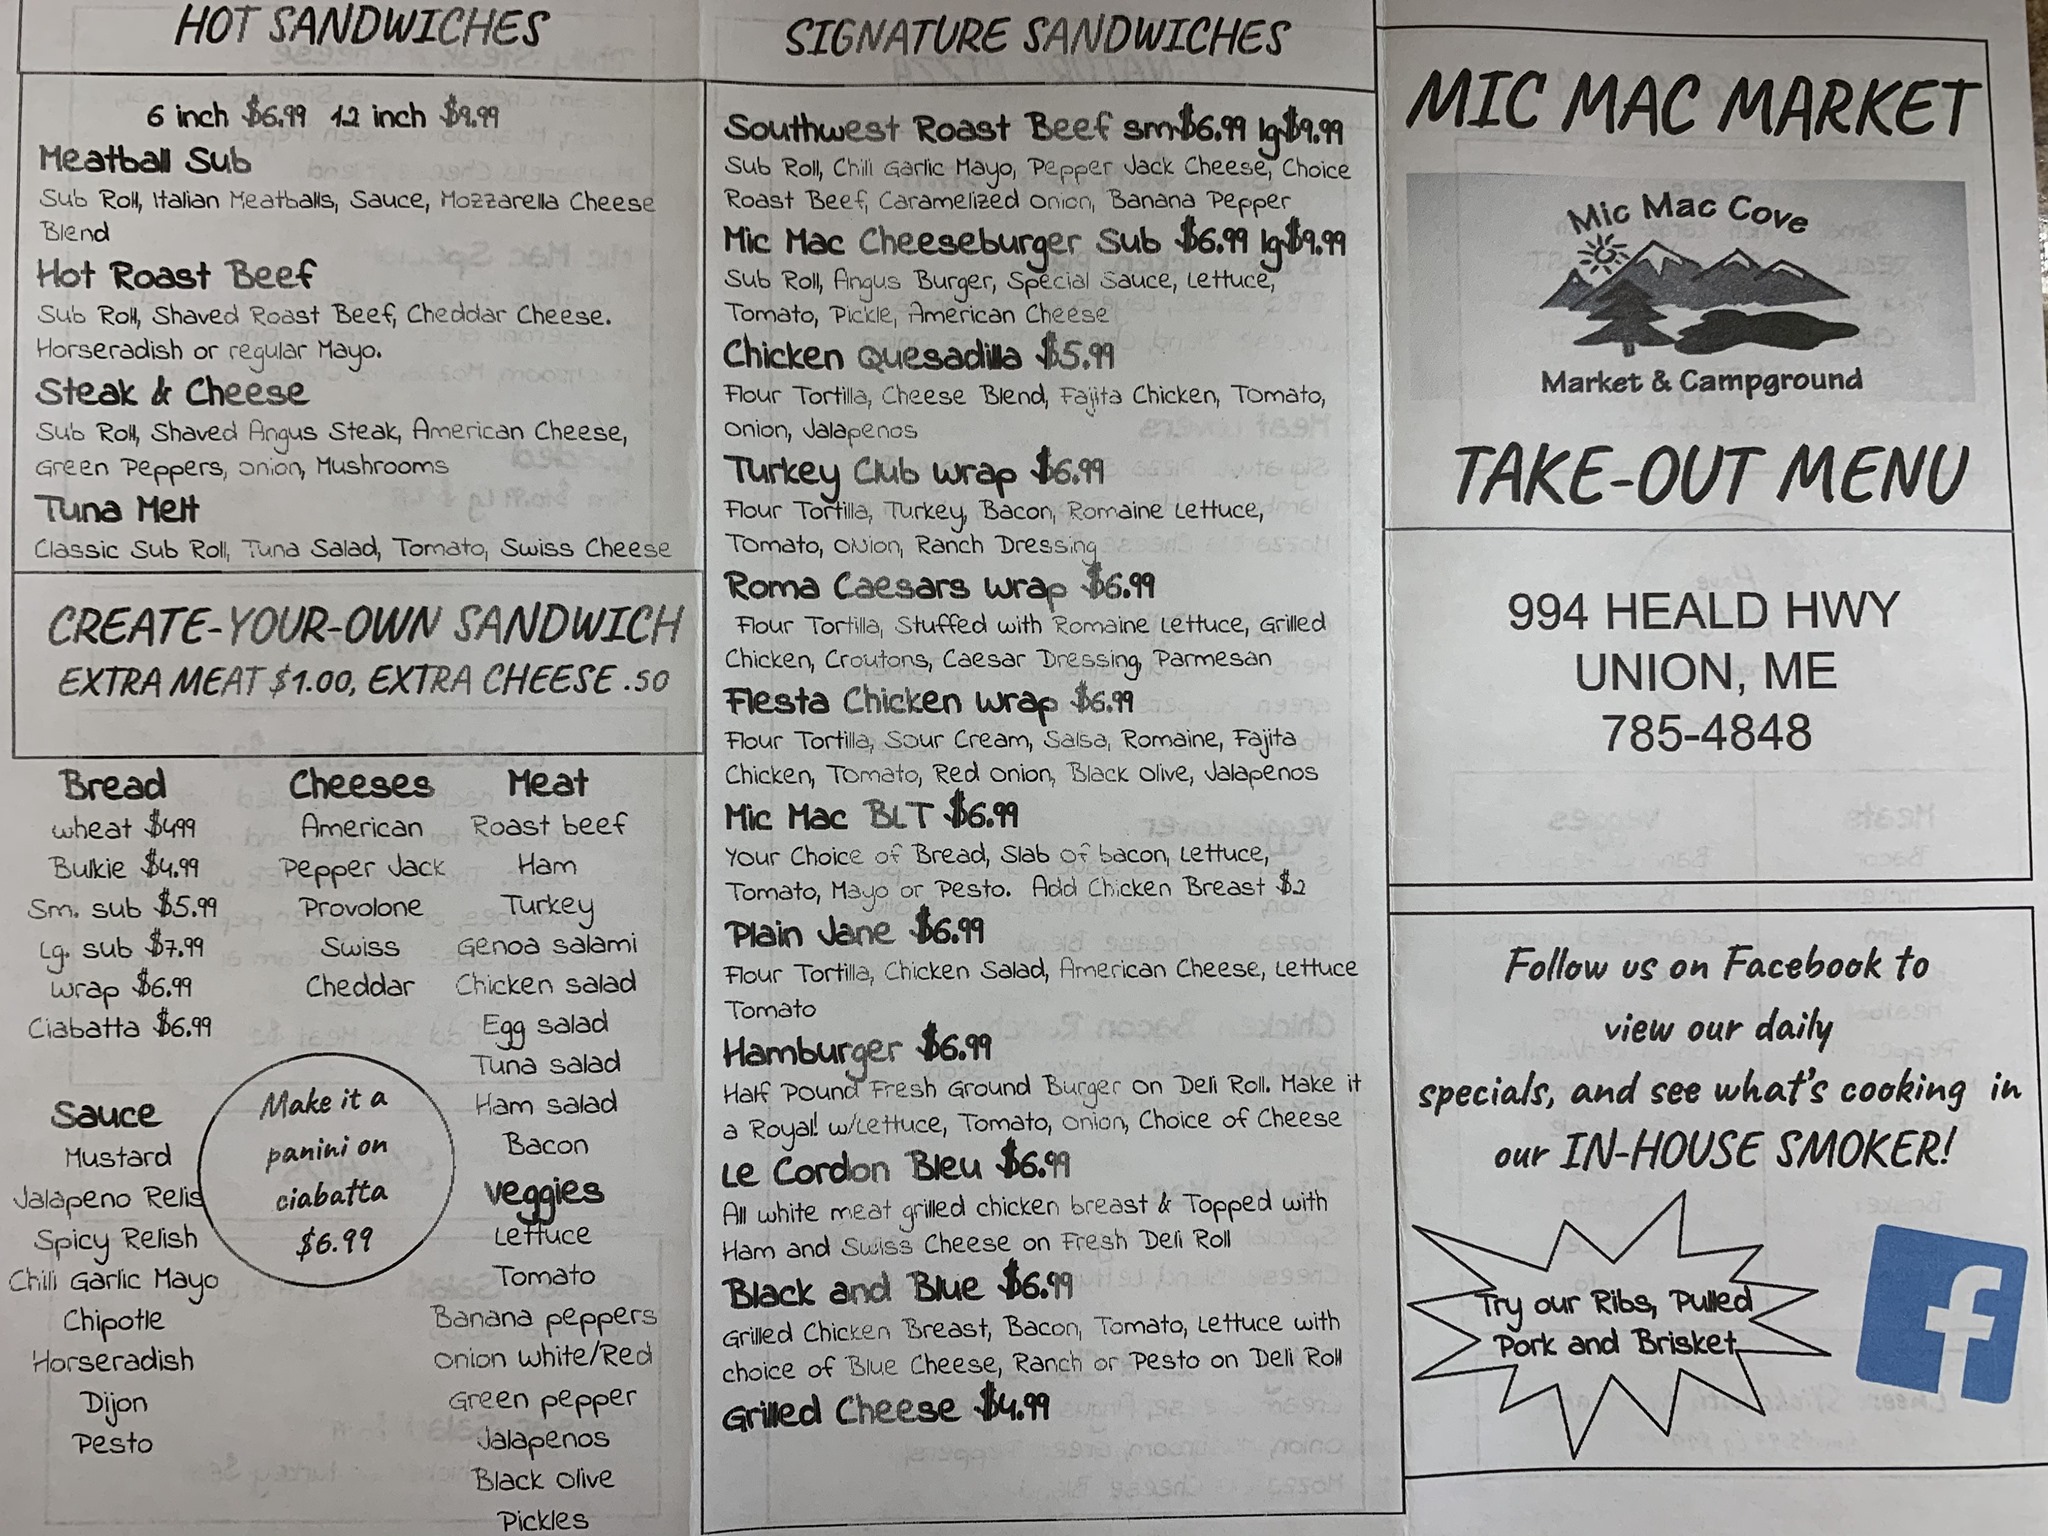 HOT SANDWICHES
6 inch $6.99 12 inch $9.99
Meatball Sub
Sub Roll, Italian Meatballs, Sauce, Mozzarella Cheese
Blend
Hot Roast Beef
Sub Roll, Shaved Roast Beef, Cheddar Cheese.
Horseradish or regular Mayo.
Steak & Cheese
Sub Roll, Shaved Angus Steak, American Cheese,
Green Peppers, Onion, Mushrooms
Tuna Melt
Classic Sub Roll, Tuna Salad, Tomato, Swiss Cheese
CREATE-YOUR-OWN SANDWICH
EXTRA MEAT $1.00, EXTRA CHEESE .50
Bread
Wheat $499
Bulkie $4.99
Sm. sub $5.99
Lg. sub $7.99
Wrap $6.99
Ciabatta $6.99
Cheeses
American
Pepper Jack
Provolone
Swiss
Cheddar
Meat
Roast beef
Ham
Turkey
Genoa salami
Chicken salad
Egg salad
Tuna salad
Ham salad
Bacon
Sauce
Mustard
Jalapeno Relis
Spicy Relish
Chili Garlic Mayo
Chipotle
Horseradish
Dijon
Pesto
Make it a
panini on
ciabatta
$6.99
Veggies
Lettuce
Tomato
Banana peppers
Onion White/Red
Green pepper
Jalapenos
Black Olive
Pickles
SIGNATURE SANDWICHES
Southwest Roast Beef sm$6.99 lg$9.99
Sub Roll, Chili Garlic Mayo, Pepper Jack Cheese, Choice
Roast Beef, Caramelized Onion, Banana Pepper
Mic Mac Cheeseburger Sub $6.99 lg$9.99
Sub Roll, Angus Burger, Special Sauce, Lettuce,
Tomato, Pickle, American Cheese
Chicken Quesadilla $5.99
Flour Tortilla, Cheese Blend, Fajita Chicken, Tomato,
Onion, Jalapenos
Turkey Club Wrap $6.99
Flour Tortilla, Turkey, Bacon, Romaine Lettuce,
Tomato, ONion, Ranch Dressing
Roma Caesars Wrap $6.99
Flour Tortilla, Stuffed with Romaine Lettuce, Grilled
Chicken, Croutons, Caesar Dressing, Parmesan
FIesta Chicken Wrap $6.99
Flour Tortilla, Sour Cream, Salsa, Romaine, Fajita
Chicken, Tomato, Red Onion, Black Olive, Jalapenos
Mic Mac BLT $6.99
Your Choice of Bread, Slab of bacon, Lettuce,
Tomato, Mayo or Pesto. Add Chicken Breast $2
Plain Jane $6.99
Flour Tortilla, Chicken Salad, American Cheese, Lettuce
Tomato
Hamburger $6.99
Half Pound Fresh Ground Burger on Deli Roll. Make it
a Royal! w/Lettuce, Tomato, Onion, Choice of Cheese
Le Cordon Bleu $6.99
All white meat grilled chicken breast & Topped with
Ham and Swiss Cheese on Fresh Deli Roll
Black and Blue $6.99
Grilled Chicken Breast, Bacon, Tomato, Lettuce with
choice of Blue Cheese, Ranch or Pesto on Deli Roll
Grilled Cheese $4.99
MIC MAC MARKET
Mic Mac Cove
Market & Campground
TAKE-OUT MENU
994 HEALD HWY
UNION, ME
785-4848
Follow us on Facebook to
view our daily
specials, and see what's cooking in
our IN-HOUSE SMOKER!
Try our Ribs, Pulled
Pork and Brisket
f